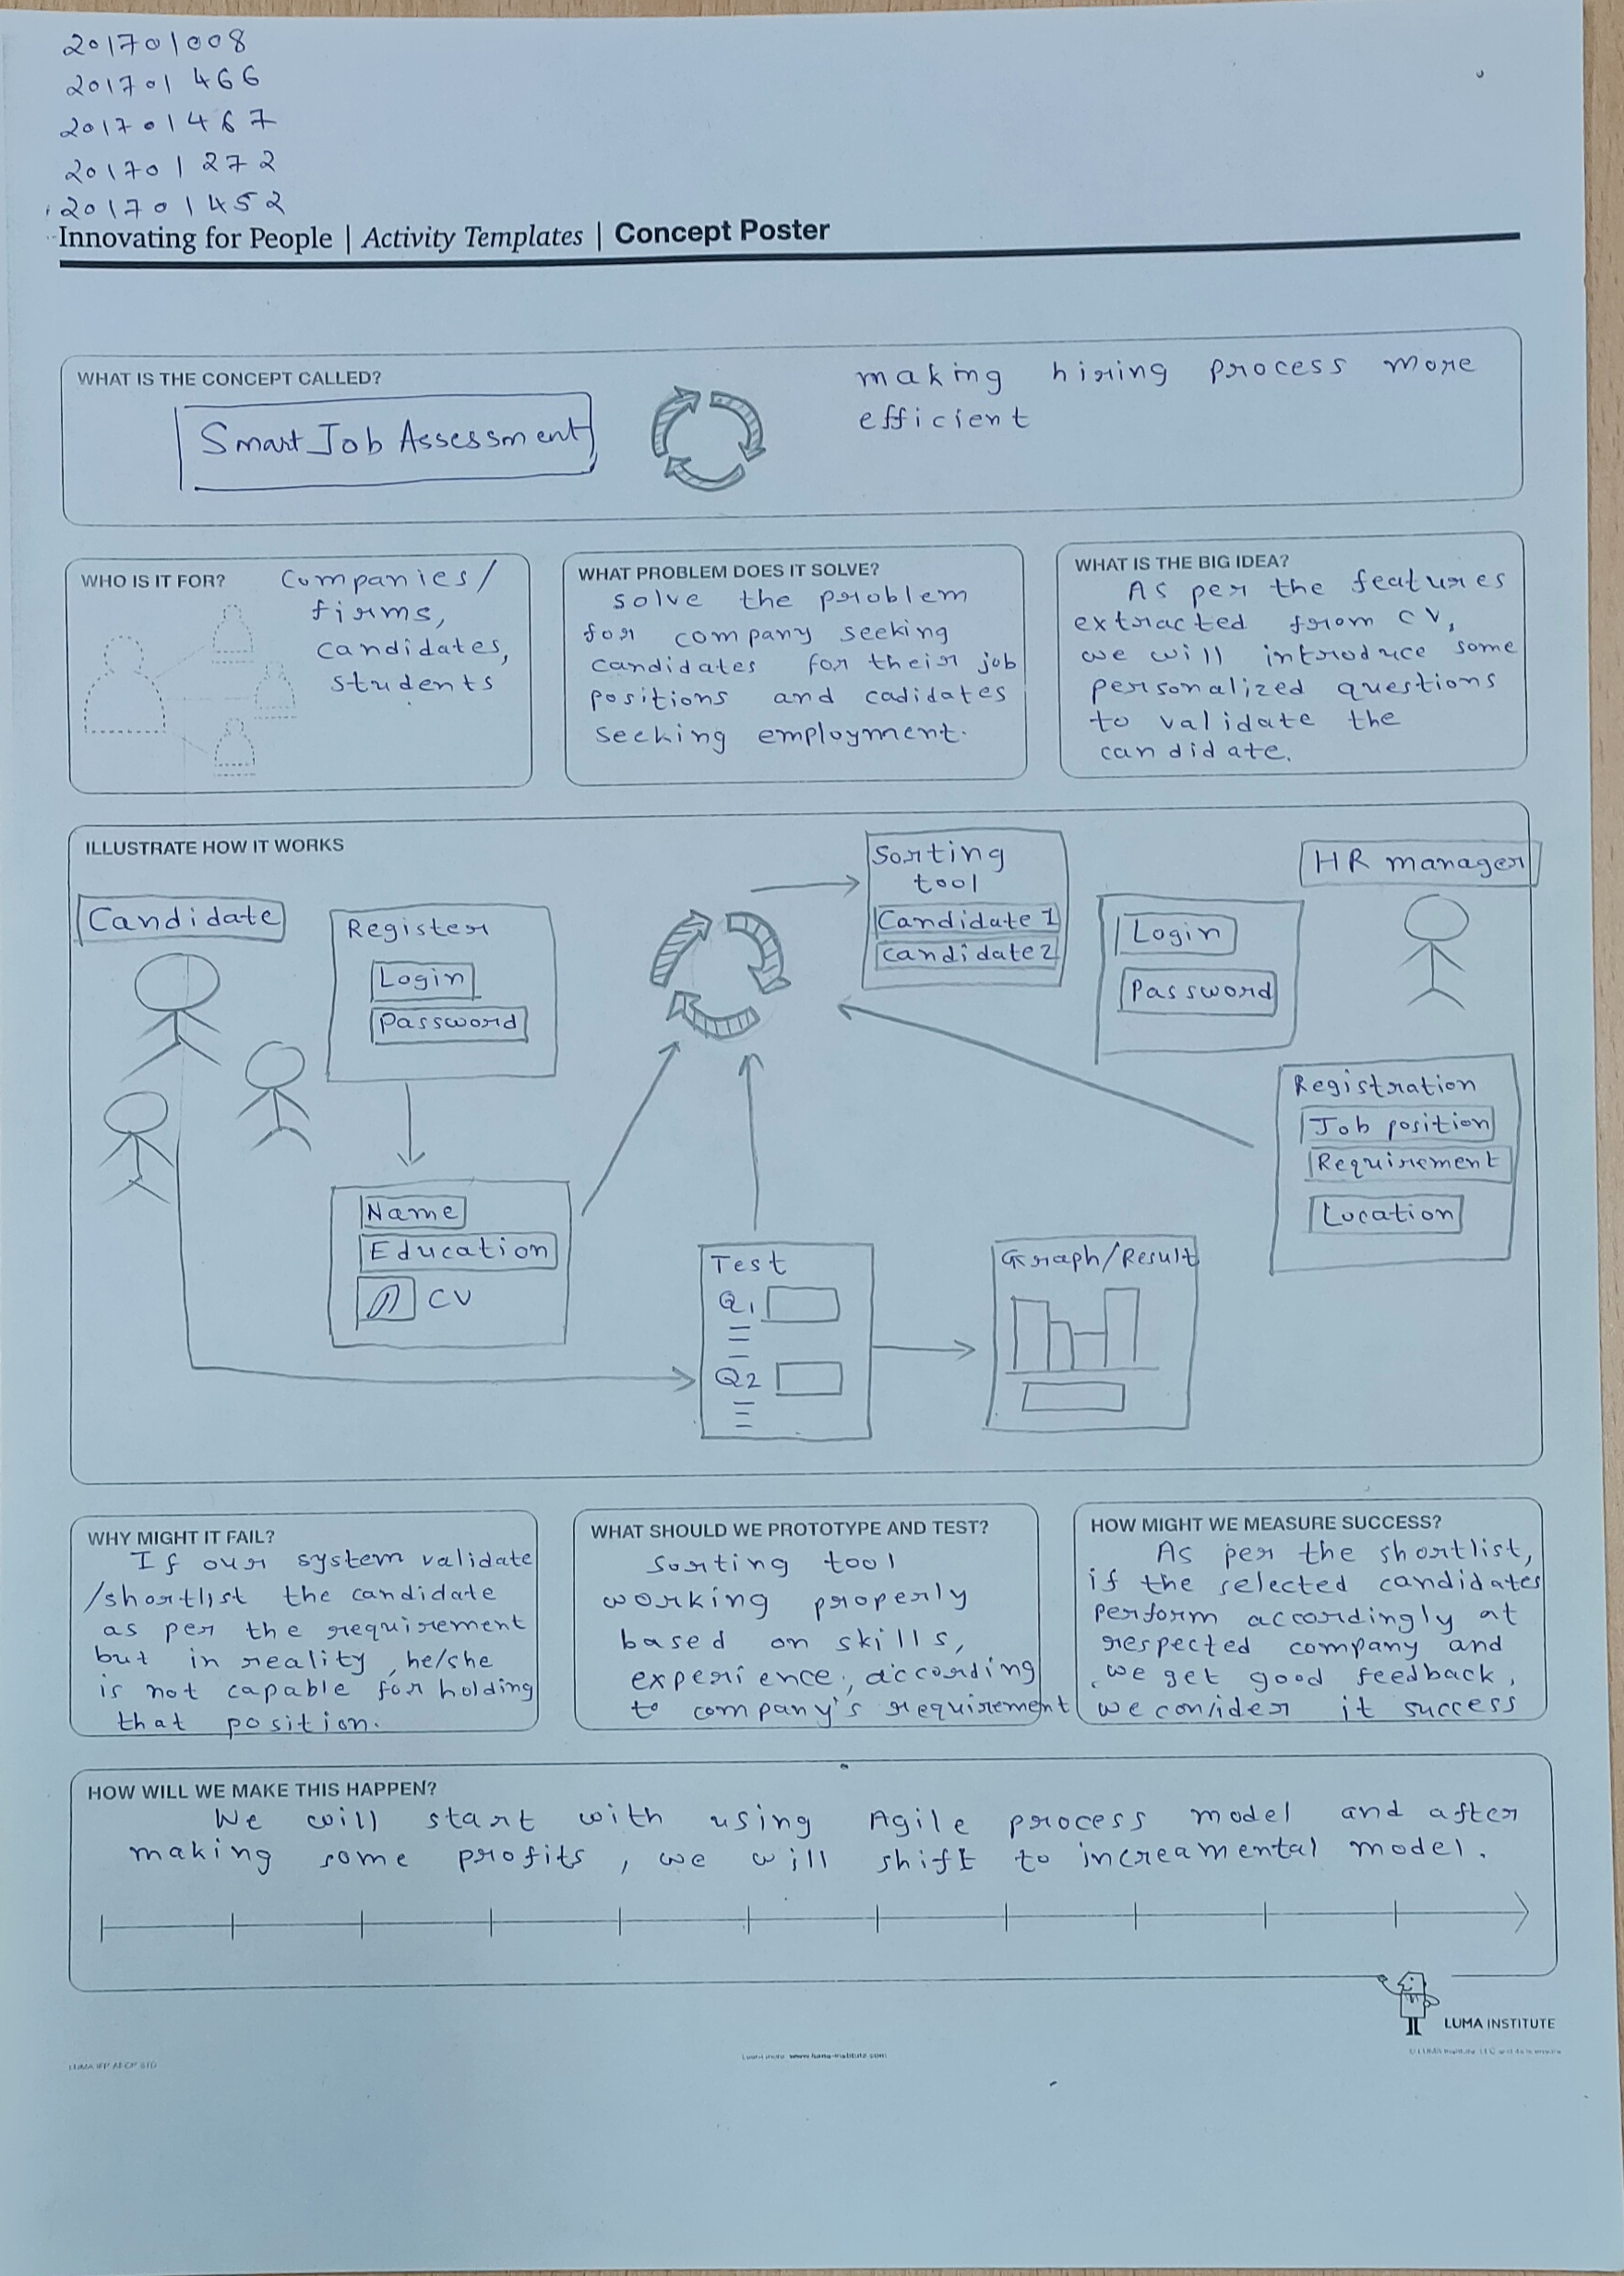 201701008
201701466
201701467
201701272
201701452
Innovating for People | Activity Templates | Concept Poster
WHAT IS THE CONCEPT CALLED?
Smart Job Assessment
making hiring process more
efficient
WHO IS IT FOR?
Companies/
firms,
candidates,
students
WHAT PROBLEM DOES IT SOLVE?
solve the problem
for company seeking
candidates for their job
positions and cadidates
seeking employment.
WHAT IS THE BIG IDEA?
As per the features
extracted from CV,
we will introduce some
personalized questions
to validate the
candidate.
ILLUSTRATE HOW IT WORKS
Candidate
Register
Login
Password
Name
Education
CV
Sorting
tool
Candidate 1
Candidate 2
HR manager
Login
Password
Registration
Job position
Requirement
Location
Test
Q1
Q2
Graph/Result
WHY MIGHT IT FAIL?
If our system validate
/shortlist the candidate
as per the requirement
but in reality, he/she
is not capable for holding
that position.
WHAT SHOULD WE PROTOTYPE AND TEST?
Sorting tool
working properly
based on skills,
experience, according
to company's requirement
HOW MIGHT WE MEASURE SUCCESS?
As per the shortlist,
if the selected candidates
perform accordingly at
respected company and
we get good feedback,
we consider it success
HOW WILL WE MAKE THIS HAPPEN?
We will start with using Agile process model and after
making some profits, we will shift to increamental model.
LUMA INSTITUTE
Learn more www.luma-institute.com